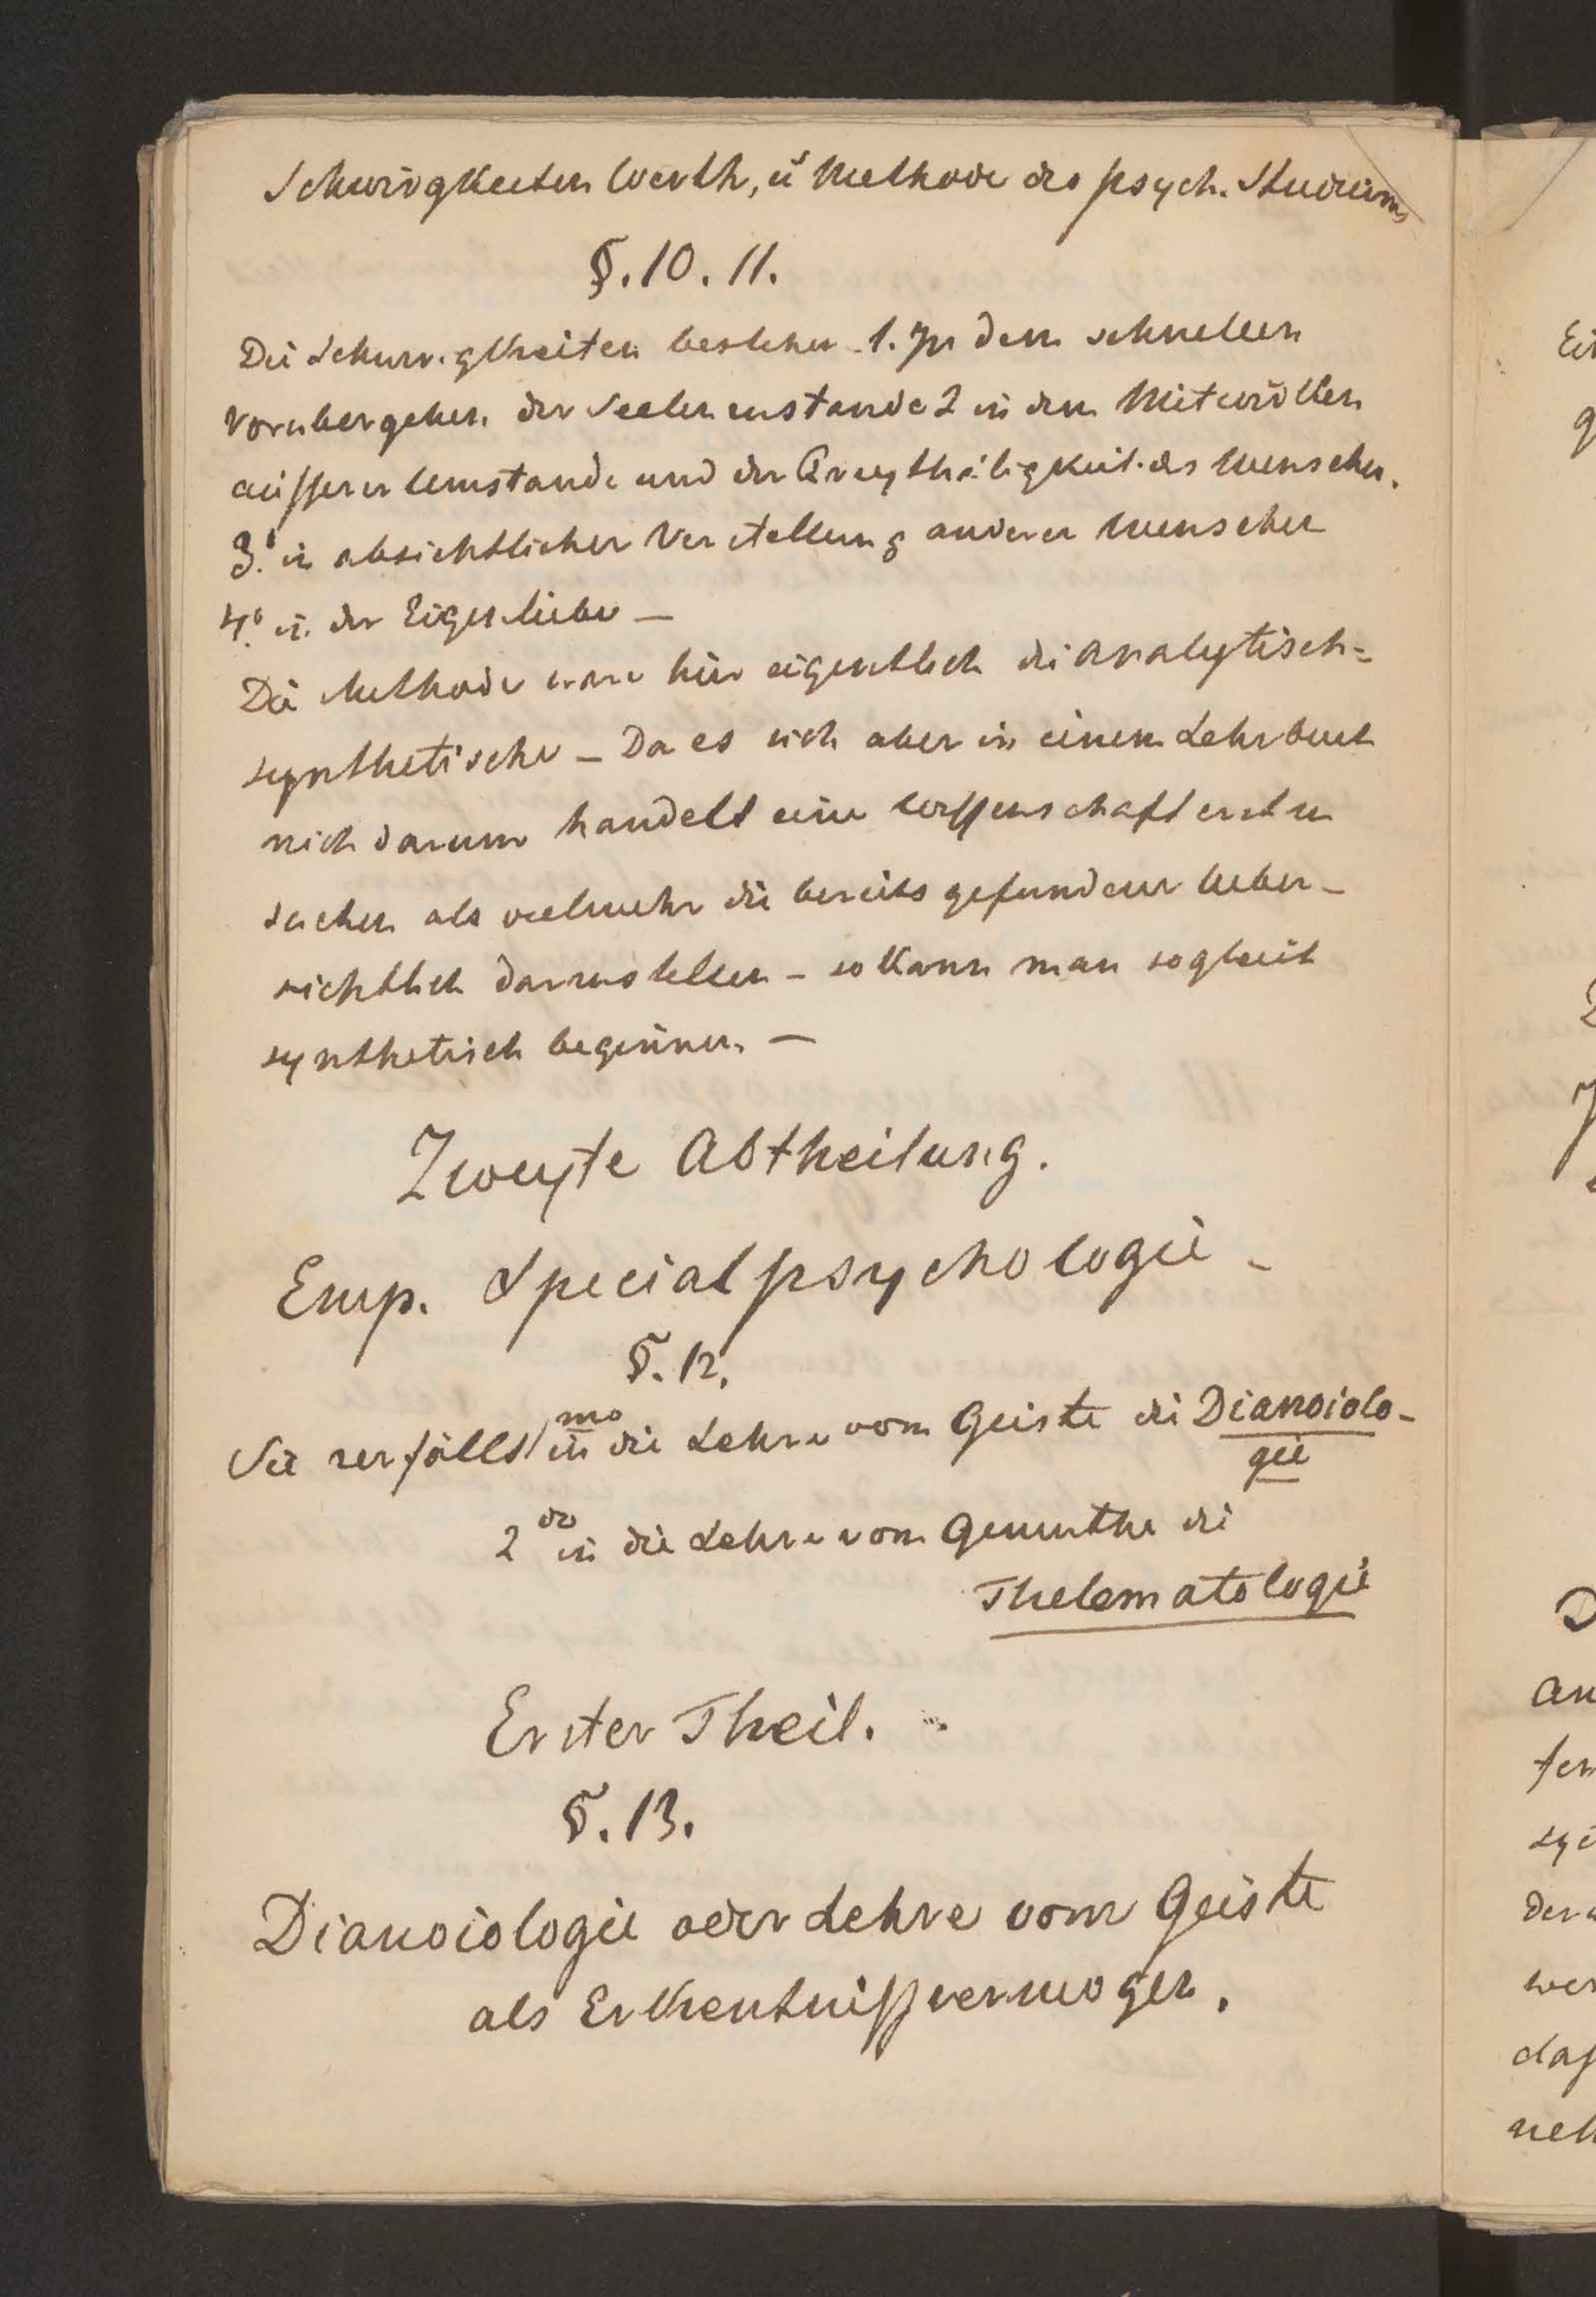 Schwirigkeiten Werth, ū Methode des psych. Studiums
§. 10. 11.
Die Schwirigkheiten bestehen 1. In dem schnellen
vorubergehen der Seelenzustande 2 in dem Mitwirken
äusserer Umstande und der des Menschen.
3.° in absichtlicher Verstellung anderer Menschen
4.° in der Eigenliebe —
Die Methode ware hier eigentlich die analytisch=
synthetische – Da es sich aber in einem Lehrbuch
nich darum handelt eine Wissenschaft erst zu
suchen als vielmehr die bereits gefundene Ueber-
sichtlich darzustellen – so kann man sogleich
synthetisch beginnen. —
Zweyte Abtheilung.
Emp. Specialpsychologie –
§. 12.
Sie zerfällt 1mo in die Lehre vom Geiste die Dianoiolo-
gie
2do in die Lehre vom Gemuthe die
Thelematologie
Erster Theil.
§. 13.
Dianoiologie oder Lehre vom Geiste
als Erkentnissvermogen.